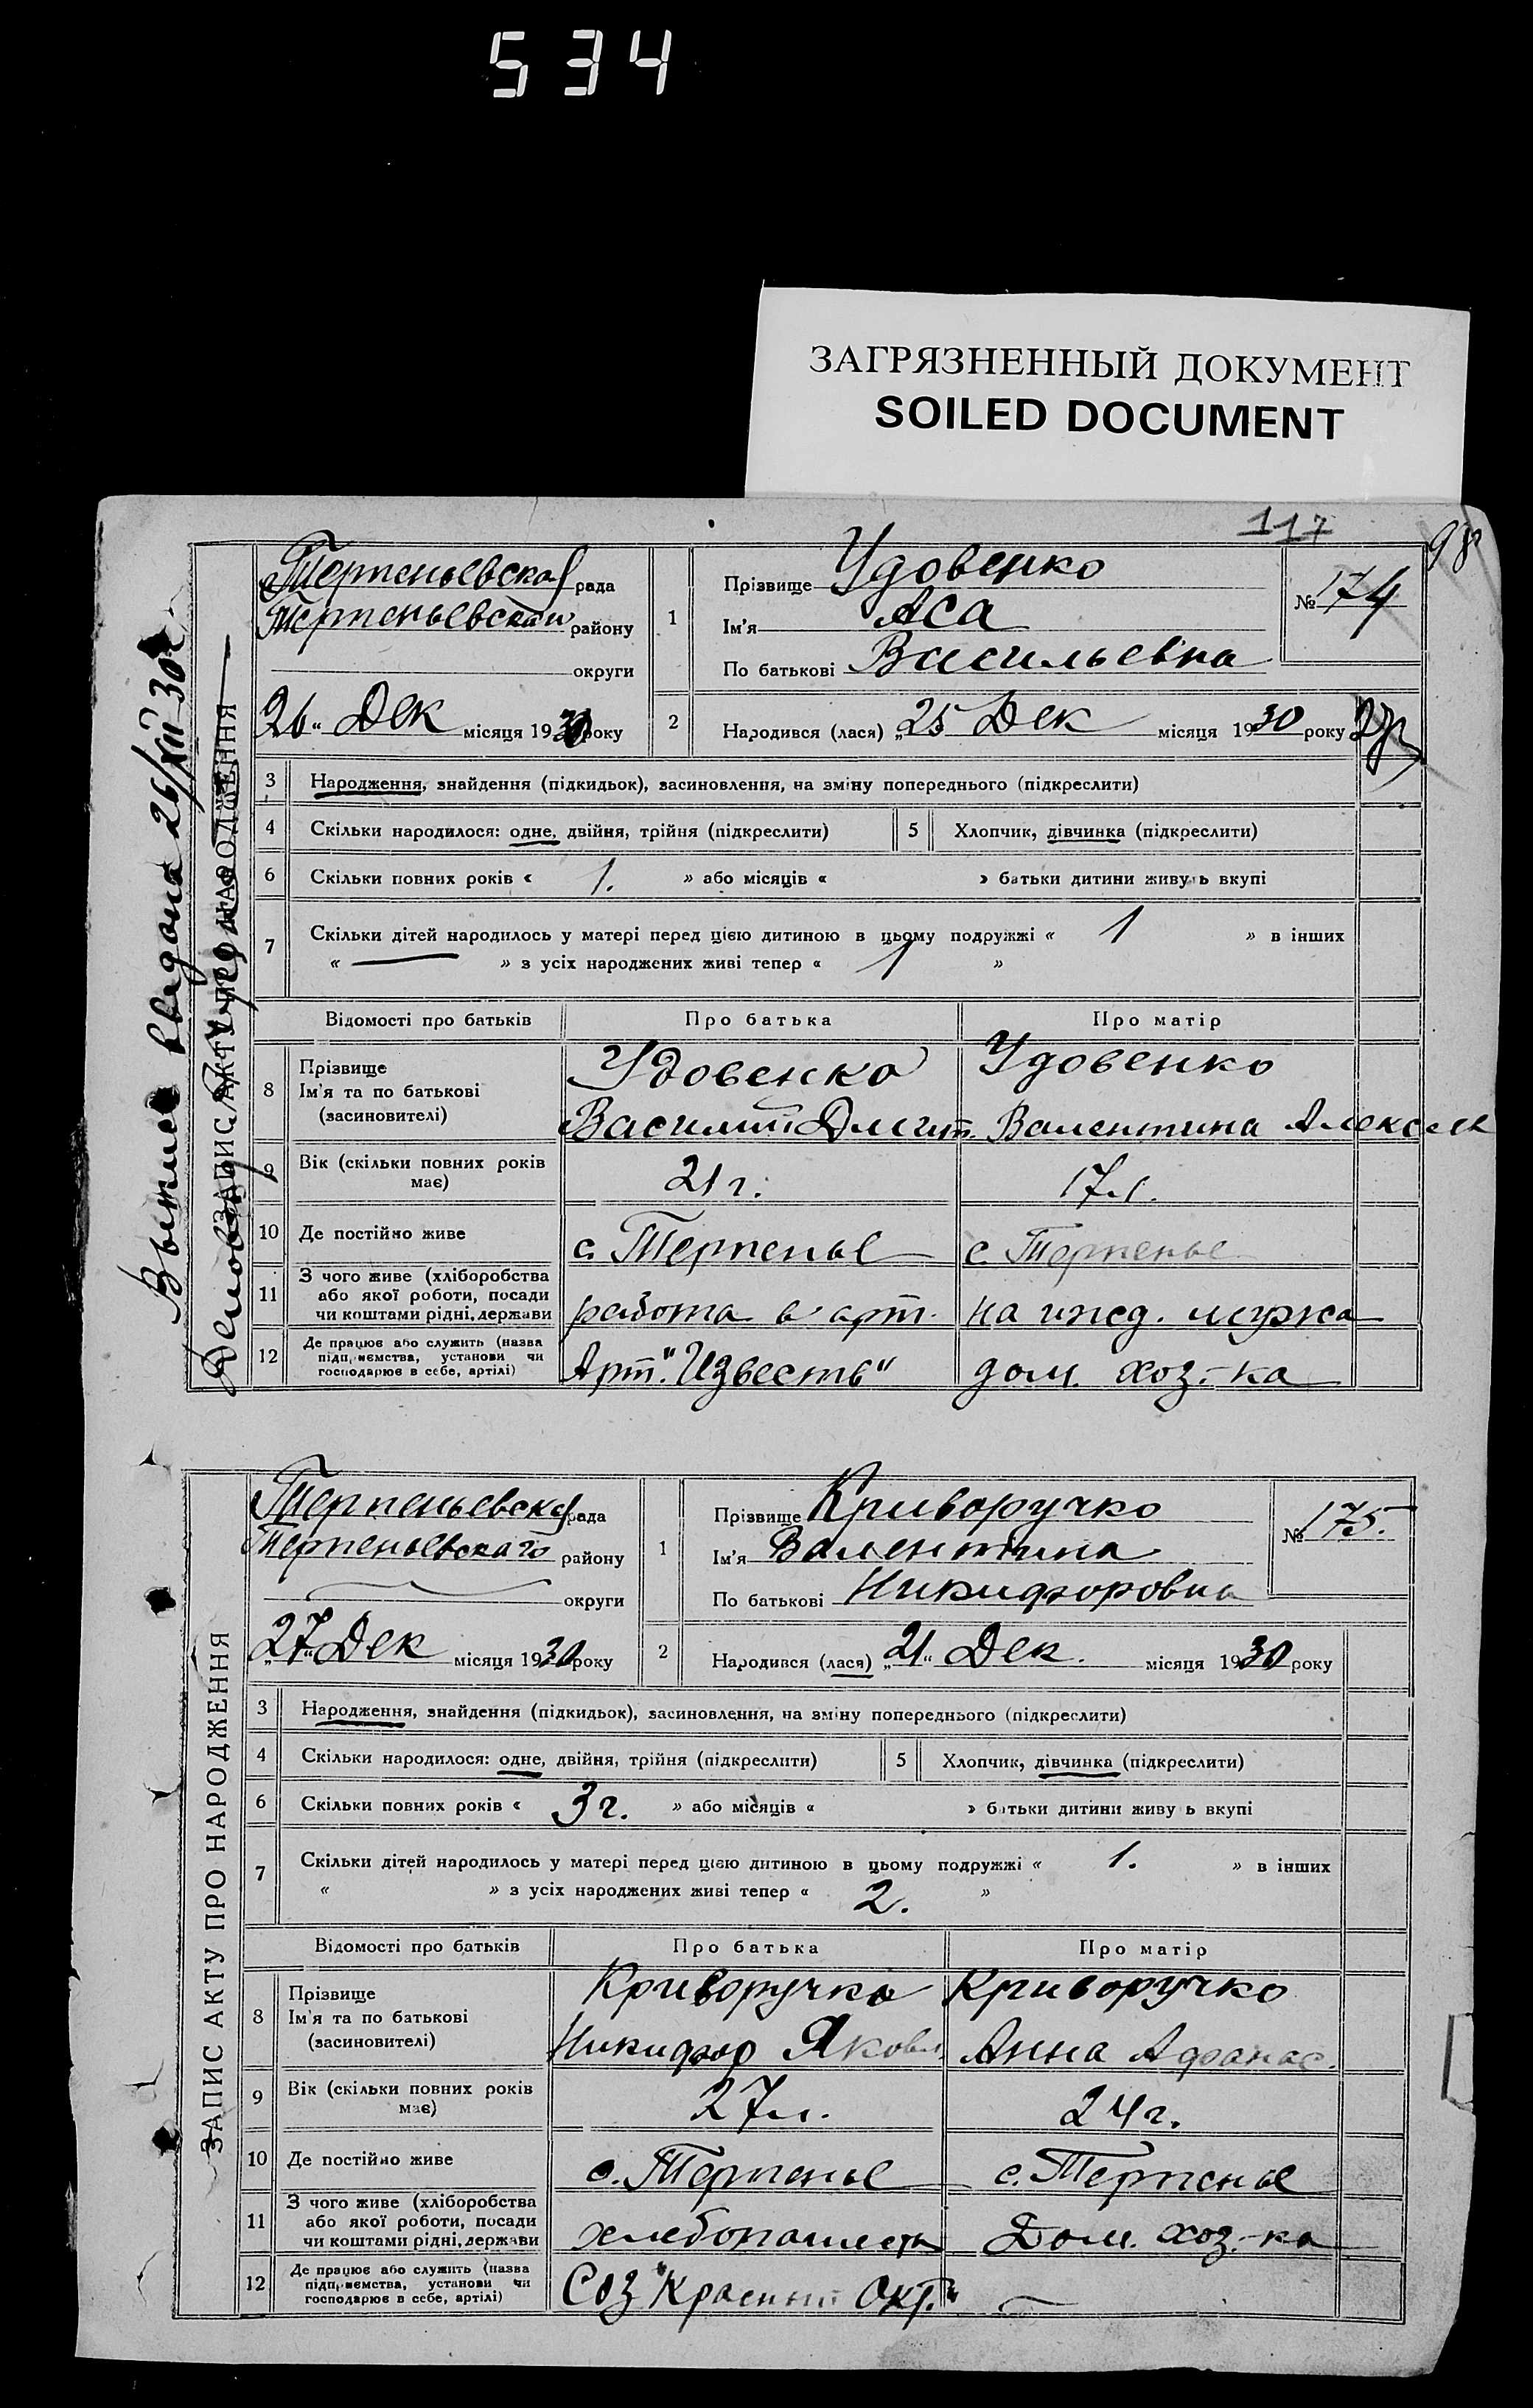 534
ЗАГРЯЗНЕННЫЙ ДОКУМЕНТ
SOILED DOCUMENT
117
98
ЗАПИС АКТУ ПРО НАРОДЖЕННЯ
Терпеньевская рада
Терпеньевской району
округи
26 " Дек місяця 1930 року
1
Прізвище Удовенко
Ім'я Аса
По батькові Васильевна
№ 174
2
Народився (лася) „25 Дек місяця 1930 року
3 Народження, знайдення (підкидьок), засиновлення, на зміну попереднього (підкреслити)
4 Скільки народилося: одне, двійня, трійня (підкреслити) 5 Хлопчик, дівчинка (підкреслити)
6 Скільки повних років « 1. » або місяців « » батьки дитини живуть вкупі
7 Скільки дітей народилось у матері перед цією дитиною в цьому подружжі « 1 » в інших
« — » з усіх народжених живі тепер « 1 »
Відомості про батьків Про батька Про матір
8 Прізвище
Ім'я та по батькові
(засновителі)
Удовенко
Василий Дмит.
Удовенко
Валентина Алексее
9 Вік (скільки повних років
має)
21 г.
17 л.
10 Де постійно живе с. Терпенье с. Терпенье
11 З чого живе (хліборобства
або якої роботи, посади
чи коштами рідні, держави
работа в арт. на ижд. мужа
12 Де працює або служить (назва
підприємства, установи чи
господарює в себе, артілі)
Арт. "Известь" дом. хоз.-ка
ЗАПИС АКТУ ПРО НАРОДЖЕННЯ
Терпеньевская рада
Терпеньевскаго району
округи
„27" Дек місяця 1930 року
1
Прізвище Криворучко
Ім'я Валентина
По батькові Никифоровна
№ 175.
2
Народився (лася) „21" Дек. місяця 1930 року
3 Народження, знайдення (підкидьок), засиновлення, на зміну попереднього (підкреслити)
4 Скільки народилося: одне, двійня, трійня (підкреслити) 5 Хлопчик, дівчинка (підкреслити)
6 Скільки повних років « 3 г. » або місяців « » батьки дитини живу ь вкупі
7 Скільки дітей народилось у матері перед цією дитиною в цьому подружжі « 1. » в інших
« » з усіх народжених живі тепер « 2. »
Відомості про батьків Про батька Про матір
8 Прізвище
Ім'я та по батькові
(засиновителі)
Криворучко
Никифор Яковл
Криворучко
Анна Афанас.
9 Вік (скільки повних років
має)
27 л.
24 г.
10 Де постійно живе с. Терпенье с. Терпенье
11 З чого живе (хліборобства
або якої роботи, посади
чи коштами рідні, держави
хлебопашеств Дом. хоз.-ка
12 Де працює або служить (назва
підприємства, установи чи
господарює в себе, артілі)
Соз "Красный Окт."